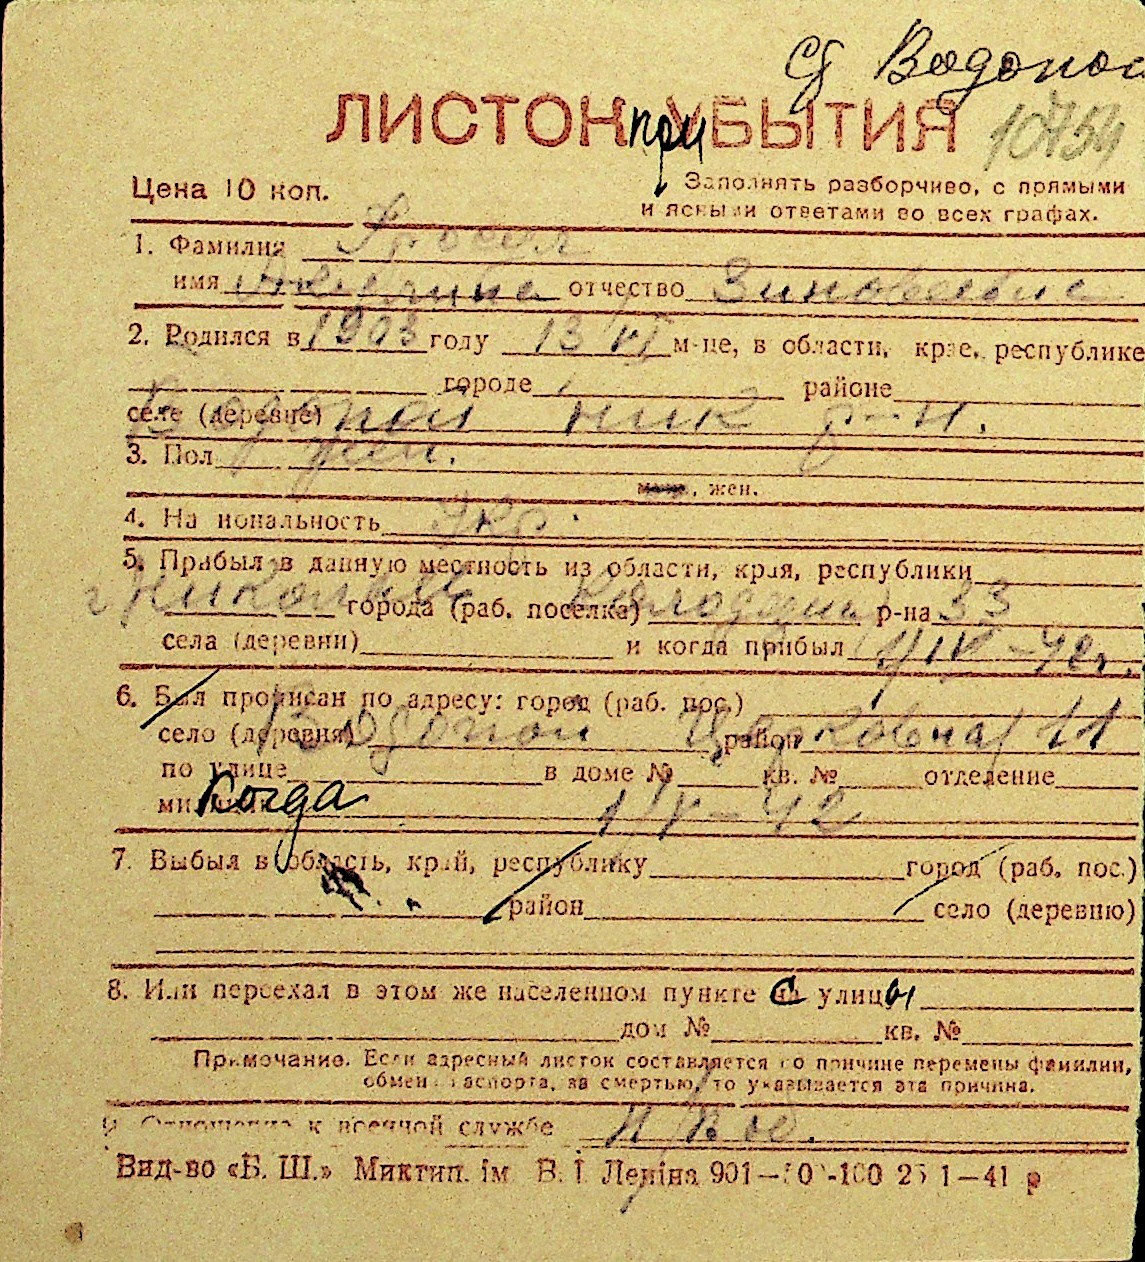 Водопой
ЛИСТОК при УБЫТИЯ 10754
Цена 10 коп.
Заполнять разборчиво, с прямыми
и ясными ответами во всех графах.
1. Фамилия
имя отчество Зиновьевна
2. Родился в 1903 году 13 VI м-це, в области, крае, республике
городе районе
селе (деревне) Водопой Ник р-н.
3. Пол жен.
, жен.
4. Национальность Укр.
5. Прибыл в данную местность из области, края, республики
г Николаев города (раб. поселка) р-на 33
села (деревни) и когда прибыл 1/IV-42г.
6. Был прописан по адресу: город (раб. пос.)
село (деревня) Водопой район Церковная 11
по улице в доме № кв. № отделение
милиции Когда 1/IV-42
7. Выбыл в область, край, республику город (раб. пос.)
район село (деревню)
8. Или переехал в этом же населенном пункте с улицы
дом № кв. №
Примечание. Если адресный листок составляется по причине перемены фамилии,
обмена паспорта, за смертью, то указывается эта причина.
9. Отношение к военной службе н/воб.
Вид-во «Б. Ш.» Миктип. ім В. І. Леніна 901—50 -100 25 1—41 р